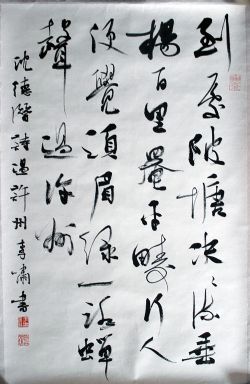 到處陂塘決〻流垂
楊百里罨平疇行人
便覺須眉綠一路蟬
聲過許州
沈德潛詩過許州李嘯書